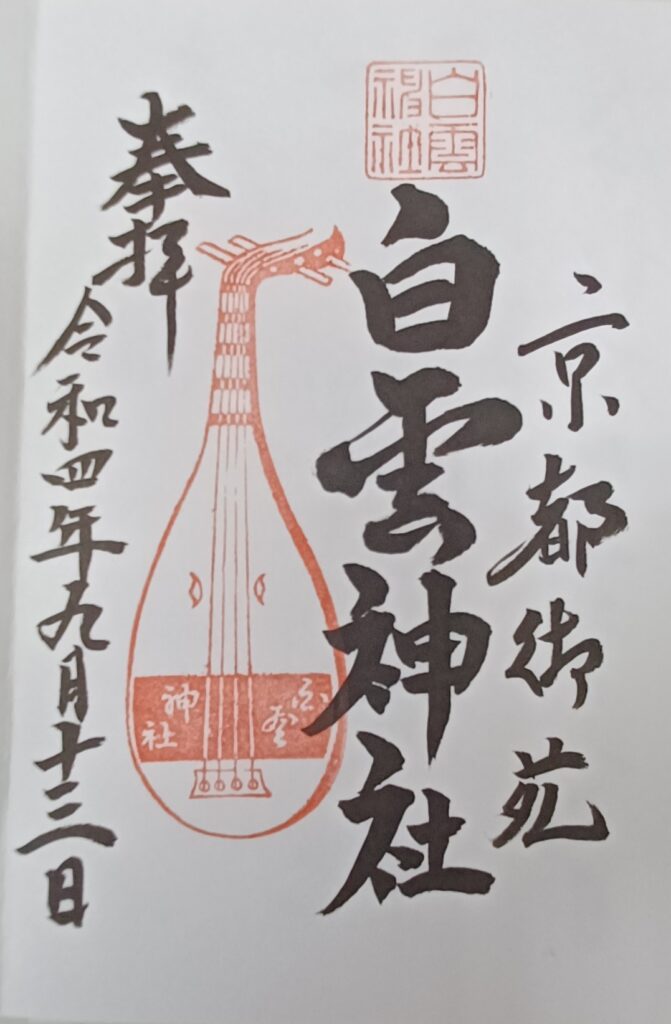 京都御苑
白雲神社
白雲
神社
白雲
神社
奉拝
令和四年九月十三日